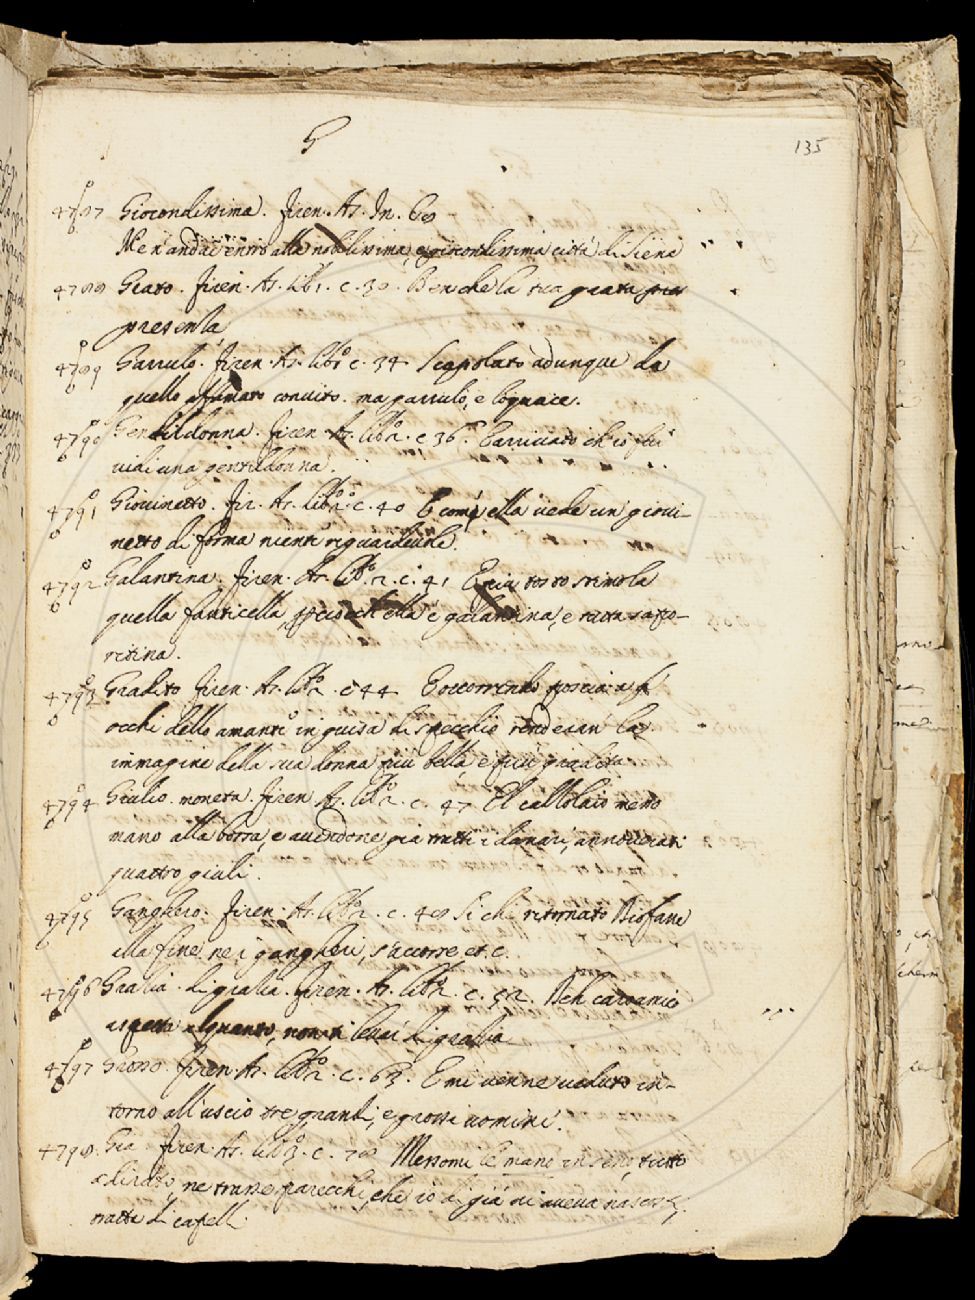 G
135
4787 Giocondissima. Firen. As. In. 68
Me n'andai entro alla nobilissima, e giocondissima città di Siena
4788 Grato. Firen. As. lib. 1. c. 30. Benche la tua grata
presenza
4789 Garrulo. Firen. As. lib. c. 34 adunque da
quello affumato convito. ma garrulo, e loquace.
4790 Gentildonna. Firen. As. lib. 2. c 36. E arrivato ch'io fui
vidi una gentildonna.
4791 Giovinetto. Fir. As. lib. 2. c. 40 E com' ella vede un giovi-
netto di forma niente riguardevole.
4792 Galantina. Firen. As. lib. 2. c. 41 E più tosto stimola
quella fanticella, ella è galantina, e tutta sapo-
ritina.
4793 Gradito Firen. As. lib. 2. c 44 E occorrendo poscia a gl'
occhi dello amante in guisa di specchio rendevan la
immagine della sua donna più bella, e più gradita
4794 Giulio. moneta. Firen As. lib. 2. c. 47 El callolaio messo
mano alla borsa, e avendone già tratti i danari, annoverati
quattro giuli.
4795 Ganghero. Firen. As. lib. 2. c. 48 Si che ritornato Diofane
alla fine ne i gangheri, s'accorse, et c.
4796 Grazia. di grazia. Firen. As. lib. 2. c. 52. Deh caro amico
aspetta alquanto, non ti levar di grazia
4797 Grosso. Firen. As. lib. 2. c. 63. E mi venne veduto in-
torno all'uscio tre grandi, e grossi uomini.
4798. Già Firen. As. lib. 3. c. 78 Messomi le mani in seno tutto
adirato, ne trasse parecchi, che io di già vi aveva nascosi,
tratti di capelli